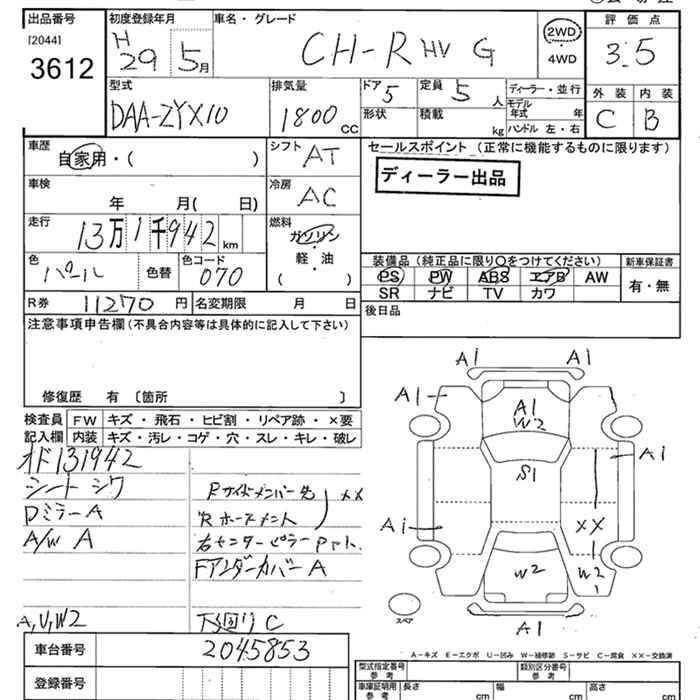 出品番号
[2044]
3612
初度登録年月
H
29 5月
車名・グレード
CH-R HV G
2WD
・
4WD
評価点
3.5
型式
DAA-ZYX10
排気量
1800 CC
ドア 5
定員 5 人
ディーラー・並行
形状
積載 kg
モデル年式 年
ハンドル 左・右
外装
C
内装
B
車歴
自家用・( )
シフト AT
セールスポイント (正常に機能するものに限ります)
ディーラー出品
車検
年 月( 日)
冷房 AC
走行
13万1千942 km
燃料
ガソリン
軽・油
( )
色
パール
色替
色コード
070
装備品 (純正品に限り○をつけてください)
新車保証書
PS PW ABS エアB AW
SR ナビ TV カワ
有・無
R券 11270 円
名変期限 月 日
後日品
注意事項申告欄 (不具合内容等は具体的に記入して下さい)
修復歴 有 〔箇所 〕
検査員
記入欄
FW キズ・飛石・ヒビ割・リペア跡・×要
内装 キズ・汚レ・コゲ・穴・スレ・キレ・破レ
131942
シート シワ
Dミラー A
A/W A
A,U,W2
Rサイドメンバー先
XX
右センターピラー
FアンダーカバーA
下廻り C
A1 A1
A1
A1
W2
A1
S1
A1
XX
W2
W2
1
A1
スペア
A-キズ E-エクボ U-凹み W-補修跡 S-サビ C-腐食 XX-交換済
車台番号
2045853
登録番号
型式指定番号
参考
類別区分番号
参考
車庫証明用
参考
長さ cm
幅 cm
高さ cm